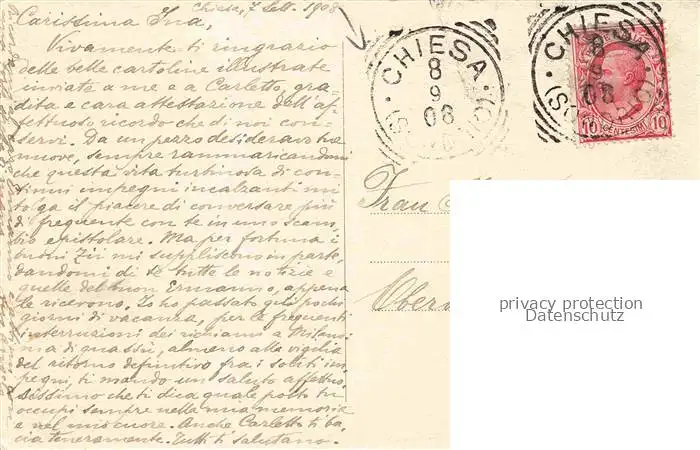 Chiesa, 7 Sett. 1908
Carissima Ina,
Vivamente ti ringrazio
delle belle cartoline illustrate
inviate a me e a Carletto, gra-
dita e cara attestazione dell'af-
fettuoso ricordo che di noi con-
servi. Da un pezzo desideravo tue
nuove, sempre rammaricandomi
che questa vita turbinosa di con-
tinui impegni incalzanti mi
tolga il piacere di conversare più
di frequente con te in uno scam-
bio epistolare. Ma per fortuna i
buoni Zii mi suppliscono in parte,
dandomi di te tutte le notizie e
quelle del buon Ermanno, appena
le ricevono. Io ho passato qui pochi
giorni di vacanza, per le frequenti
interruzioni dei richiami a Milano,
ma di quassù, almeno alla vigilia
del ritorno definitivo fra i soliti im-
pegni, ti mando un saluto affettuo-
sissimo che ti dica quale posto tu
occupi sempre nella mia memoria
e nel mio cuore. Anche Carletto ti ba-
cia teneramente. Tutti ti salutano.
CHIESA
8
9
08
CHIESA
8
9
08
10 CENTESIMI 10
Frau
privacy protection
Datenschutz